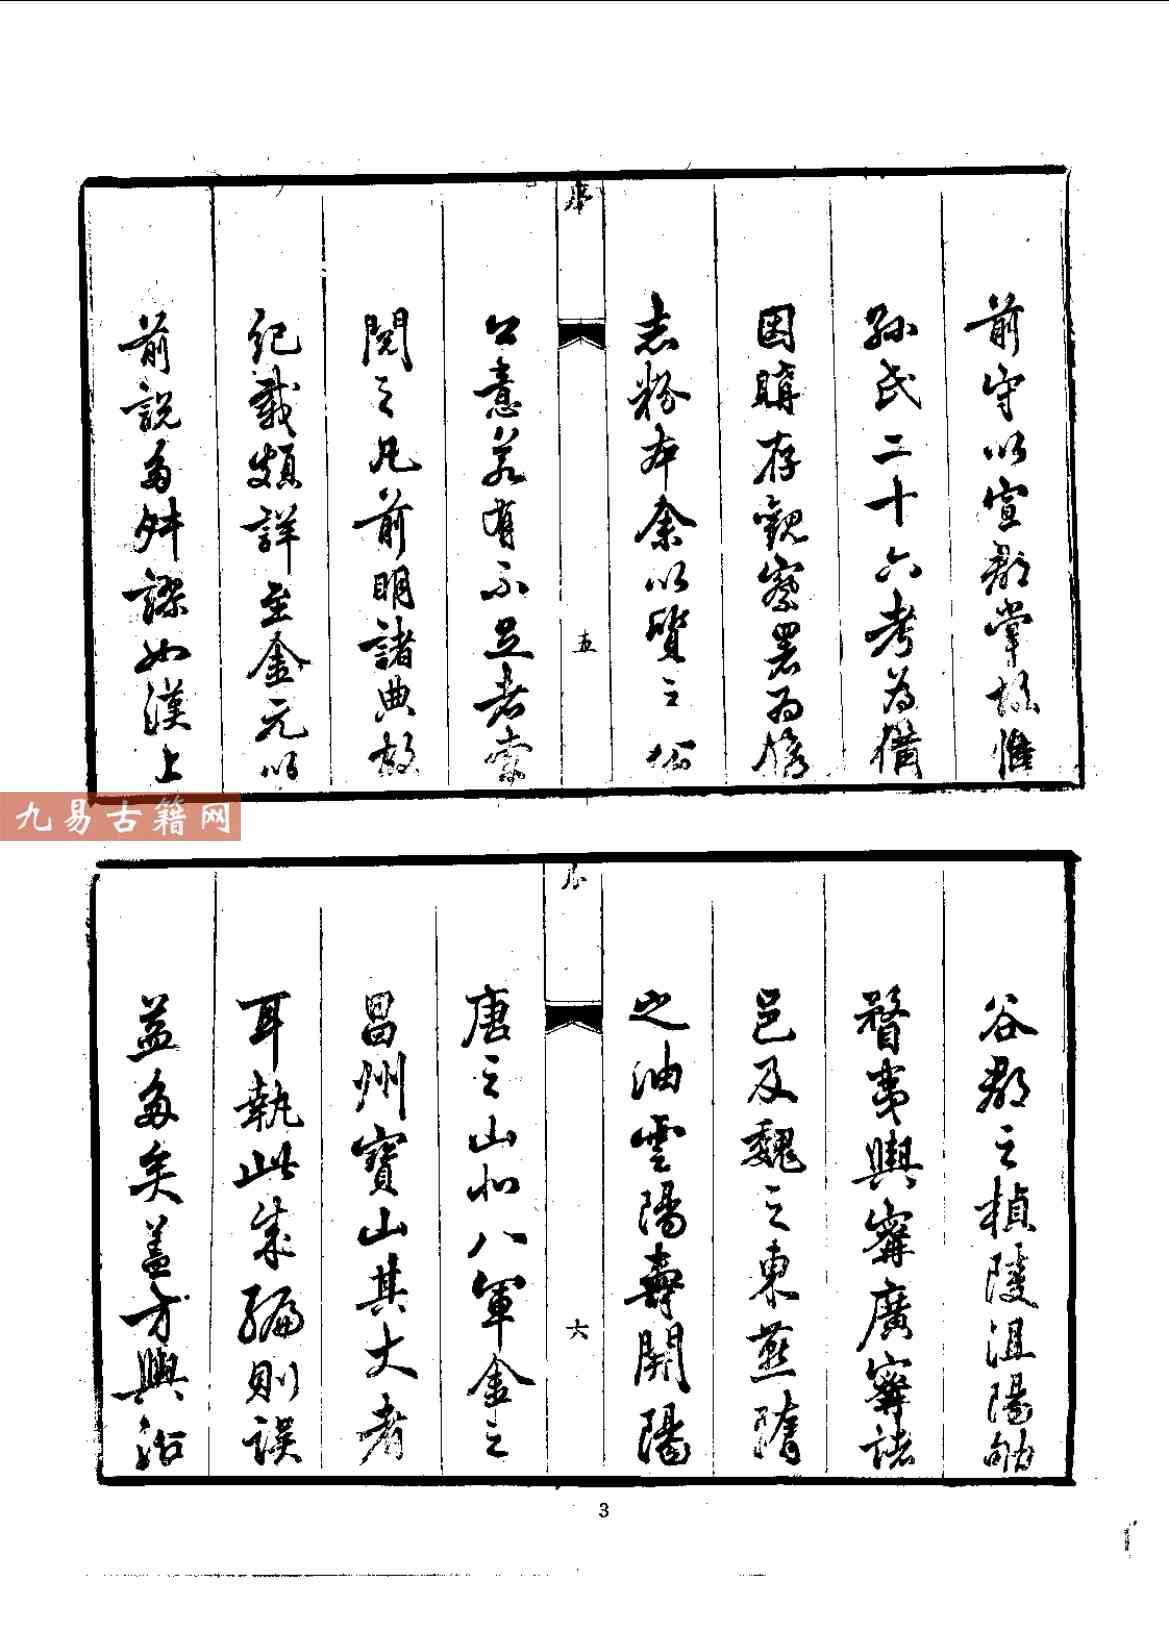 前守以宣郡掌故惟
孫氏二十六考為備
因購存觀察署為修
志粉本余以質之公
公意若有不足者索
閱之凡前明諸典故
紀載頗詳至金元以
前說多舛謬如漢上
五
九易古籍网
谷郡之楨陵沮陽
瞀夷輿寗廣寗諸
邑及魏之東燕隋
之油雲陽壽開陽
唐之山北八軍金之
昌州寶山其大者
耳執此成編則誤
益多矣蓋方輿沿
六
3